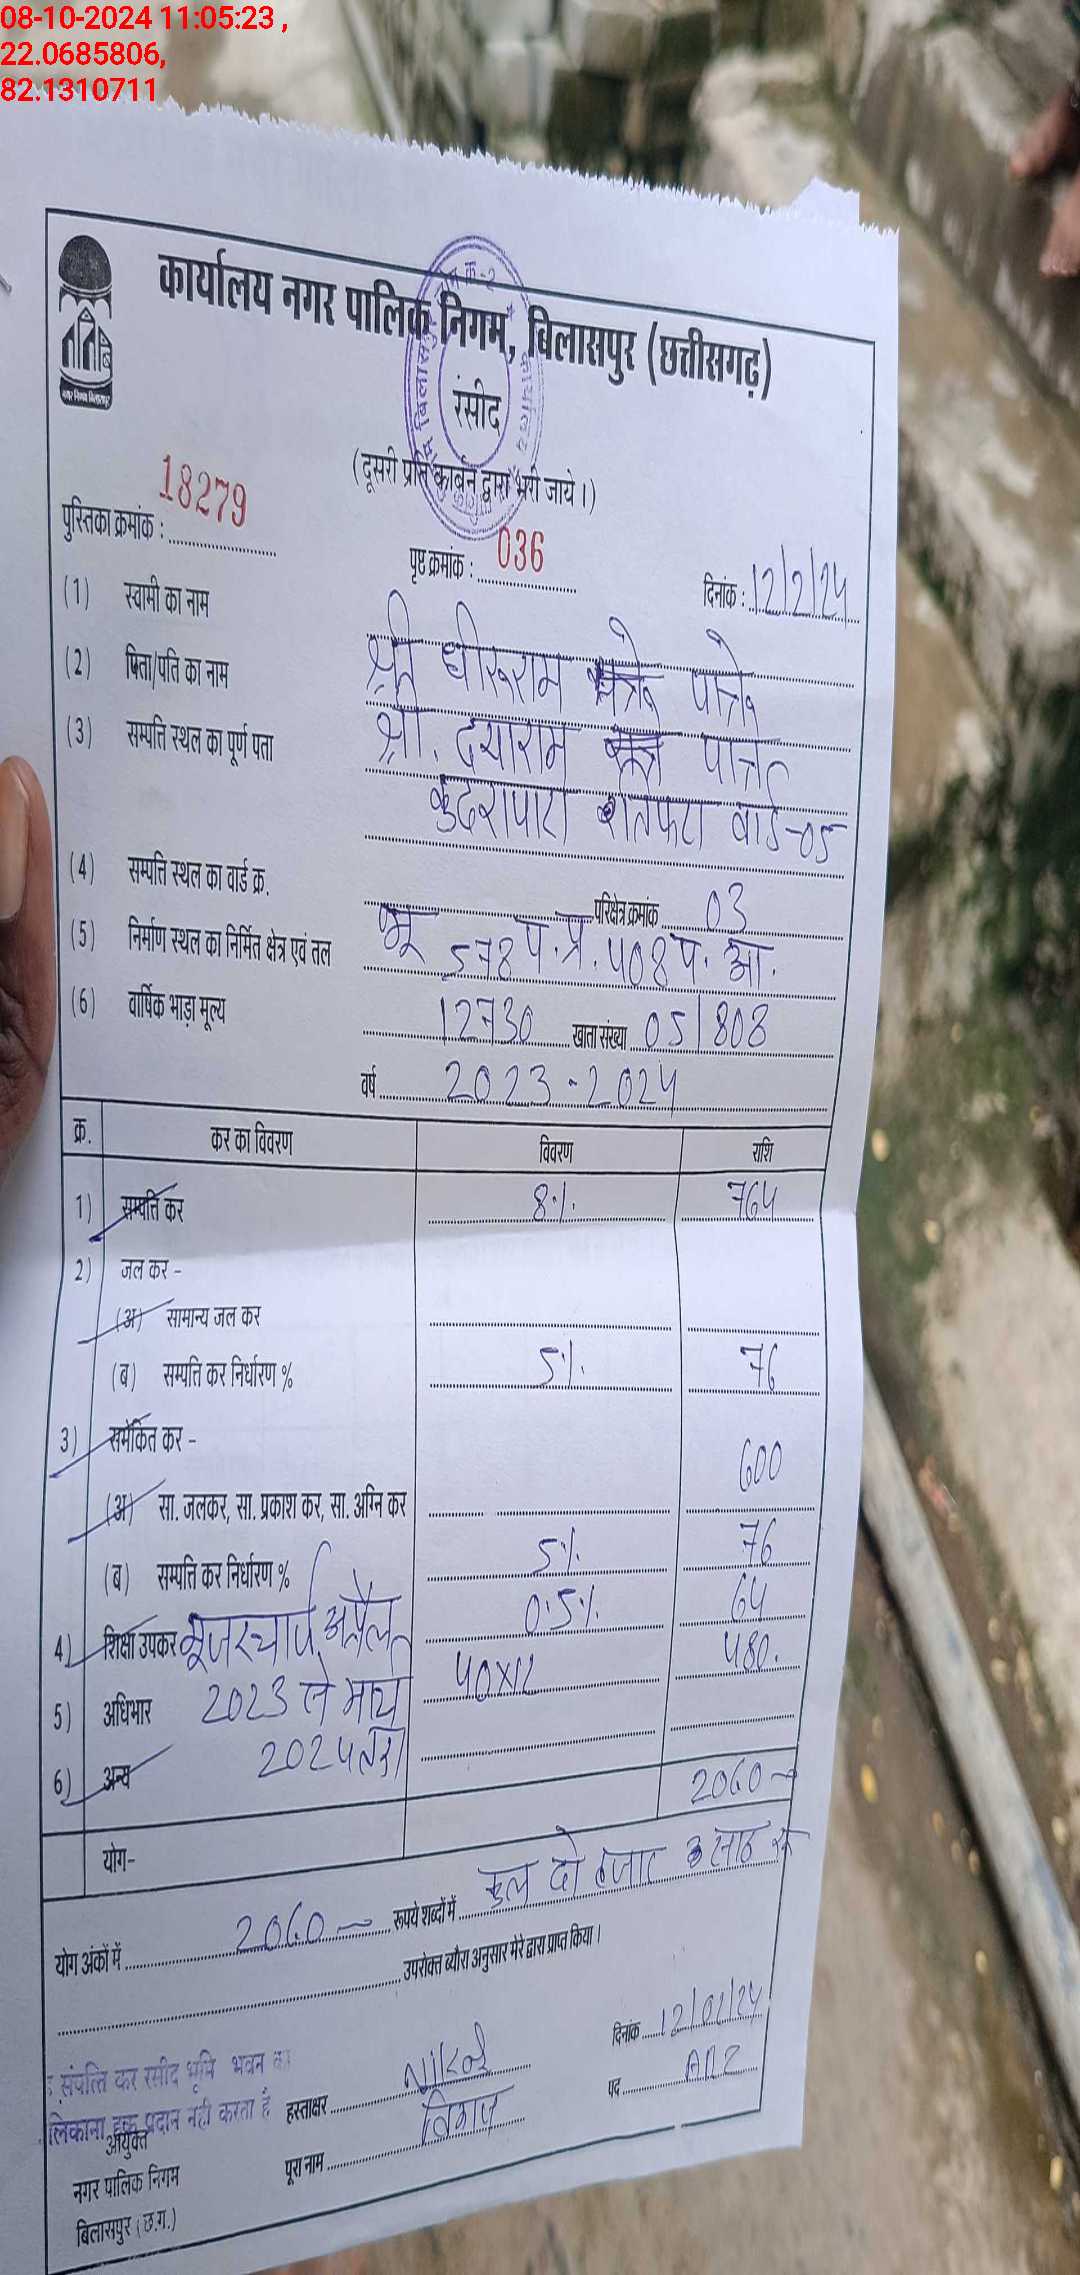 08-10-2024 11:05:23 ,
22.0685806,
82.1310711
कार्यालय नगर पालिक निगम, बिलासपुर (छत्तीसगढ़)
नगर निगम बिलासपुर
रसीद
(दूसरी प्रति कार्बन द्वारा भरी जाये।)
पुस्तिका क्रमांक : 18279 पृष्ट क्रमांक : 036 दिनांक : 12/2/24
(1) स्वामी का नाम श्री धीरूराम पात्रे
(2) पिता/पति का नाम श्री. दयाराम पात्रे
(3) सम्पत्ति स्थल का पूर्ण पता कुदरापारा वार्ड-05
(4) सम्पत्ति स्थल का वार्ड क्र. परिक्षेत्र क्रमांक 03
(5) निर्माण स्थल का निर्मित क्षेत्र एवं तल भू 578 प.प्र. 408 प. आ.
(6) वार्षिक भाड़ा मूल्य 12730 खाता संख्या 05/808
वर्ष 2023-2024
क्र. कर का विवरण विवरण राशि
1) सम्पत्ति कर 8% 764
2) जल कर -
(अ) सामान्य जल कर
(ब) सम्पत्ति कर निर्धारण % 5% 76
3) समेकित कर -
600
(अ) सा. जलकर, सा. प्रकाश कर, सा. अग्नि कर
(ब) सम्पत्ति कर निर्धारण % 5% 76
4) शिक्षा उपकर यूजरचार्ज अप्रैल 0.5% 64
5) अधिभार 2023 से मार्च 40x12 480.
6) अन्य 2024 तक
योग- 2060
योग अंकों में 2060 रूपये शब्दों में कुल दो हजार साठ रू
उपरोक्त ब्यौरा अनुसार मेरे द्वारा प्राप्त किया।
दिनांक 12/02/24
संपत्ति कर रसीद भूमि भवन का
लिकाना हक प्रदान नही करता है
हस्ताक्षर पद ARI
आयुक्त
नगर पालिक निगम
बिलासपुर (छ.ग.)
पूरा नाम